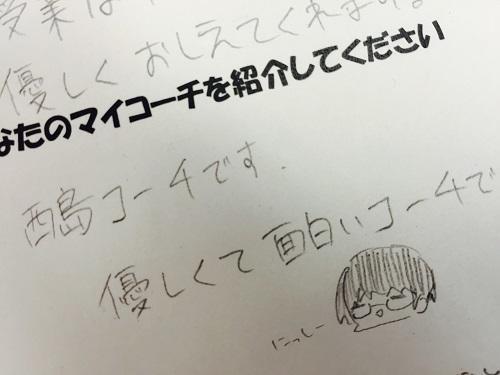 授業は
優しくおしえてくれます。
なたのマイコーチを紹介してください
酉島コーチです.
優しくて面白いコーチで
にっしー